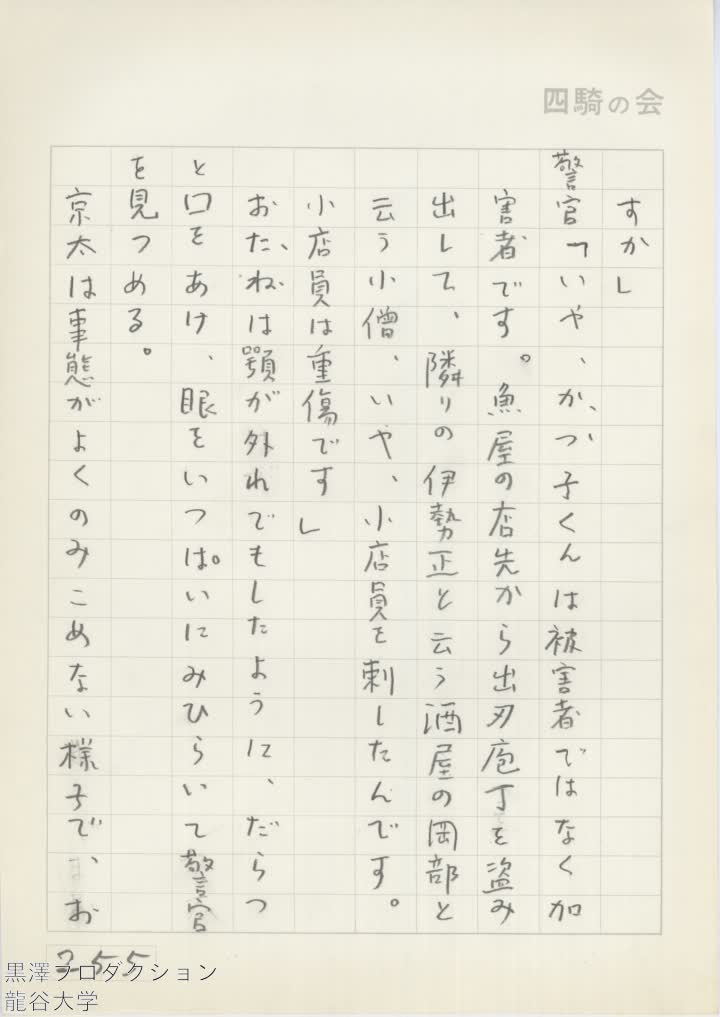 四騎の会
すか」
警官「いや、かつ子くんは被害者ではなく加
害者です。魚屋の店先から出刃庖丁を盗み
出して、隣りの伊勢正と云う酒屋の岡部と
云う小僧、いや、小店員を刺したんです。
小店員は重傷です」
おたねは顎が外れでもしたように、だらつ
と口をあけ、眼をいつぱいにみひらいて警官
を見つめる。
京太は事態がよくのみこめない様子で、お
255
黒澤プロダクション
龍谷大学